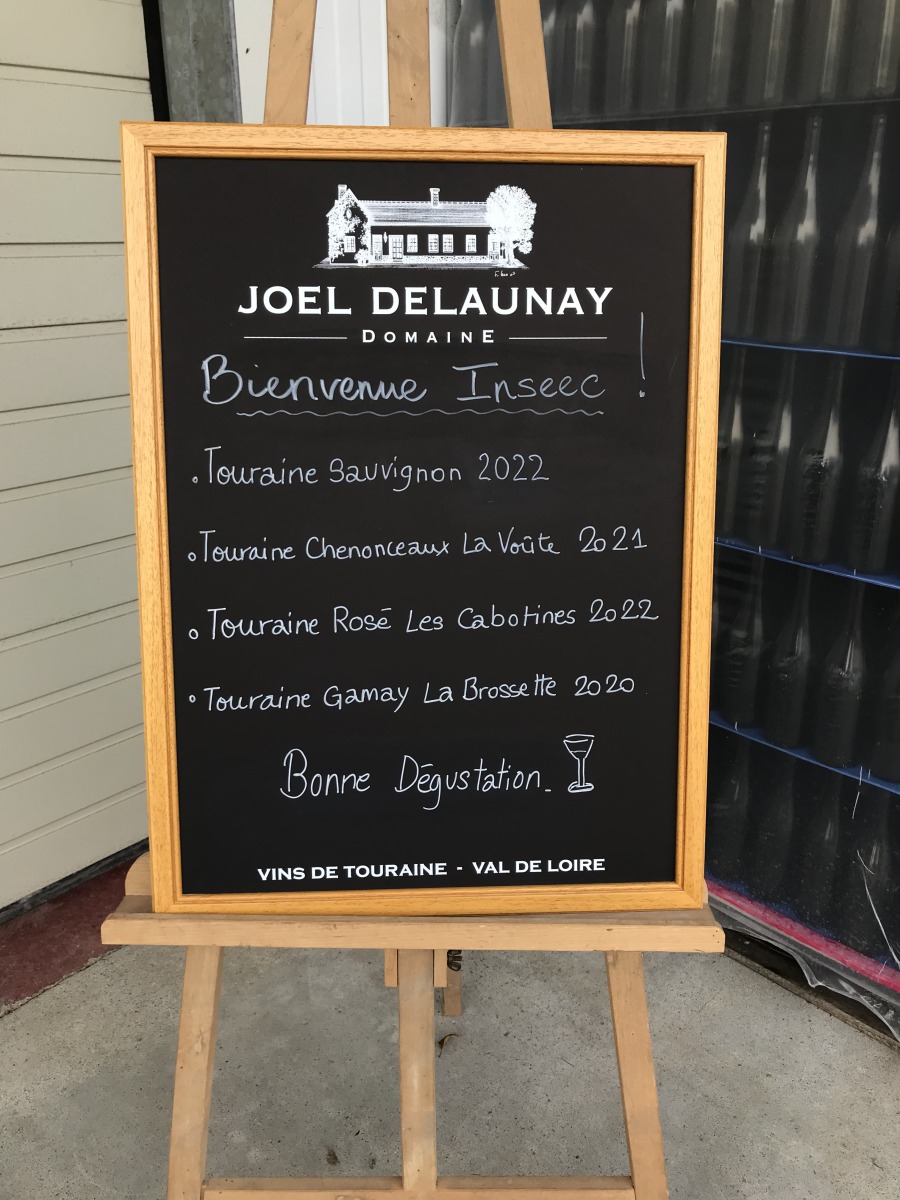 JOEL DELAUNAY
DOMAINE
Bienvenue Inseec !
. Touraine Sauvignon 2022
° Touraine Chenonceaux La Voûte 2021
° Touraine Rosé Les Cabotines 2022
° Touraine Gamay La Brossette 2020
Bonne Dégustation.
VINS DE TOURAINE - VAL DE LOIRE